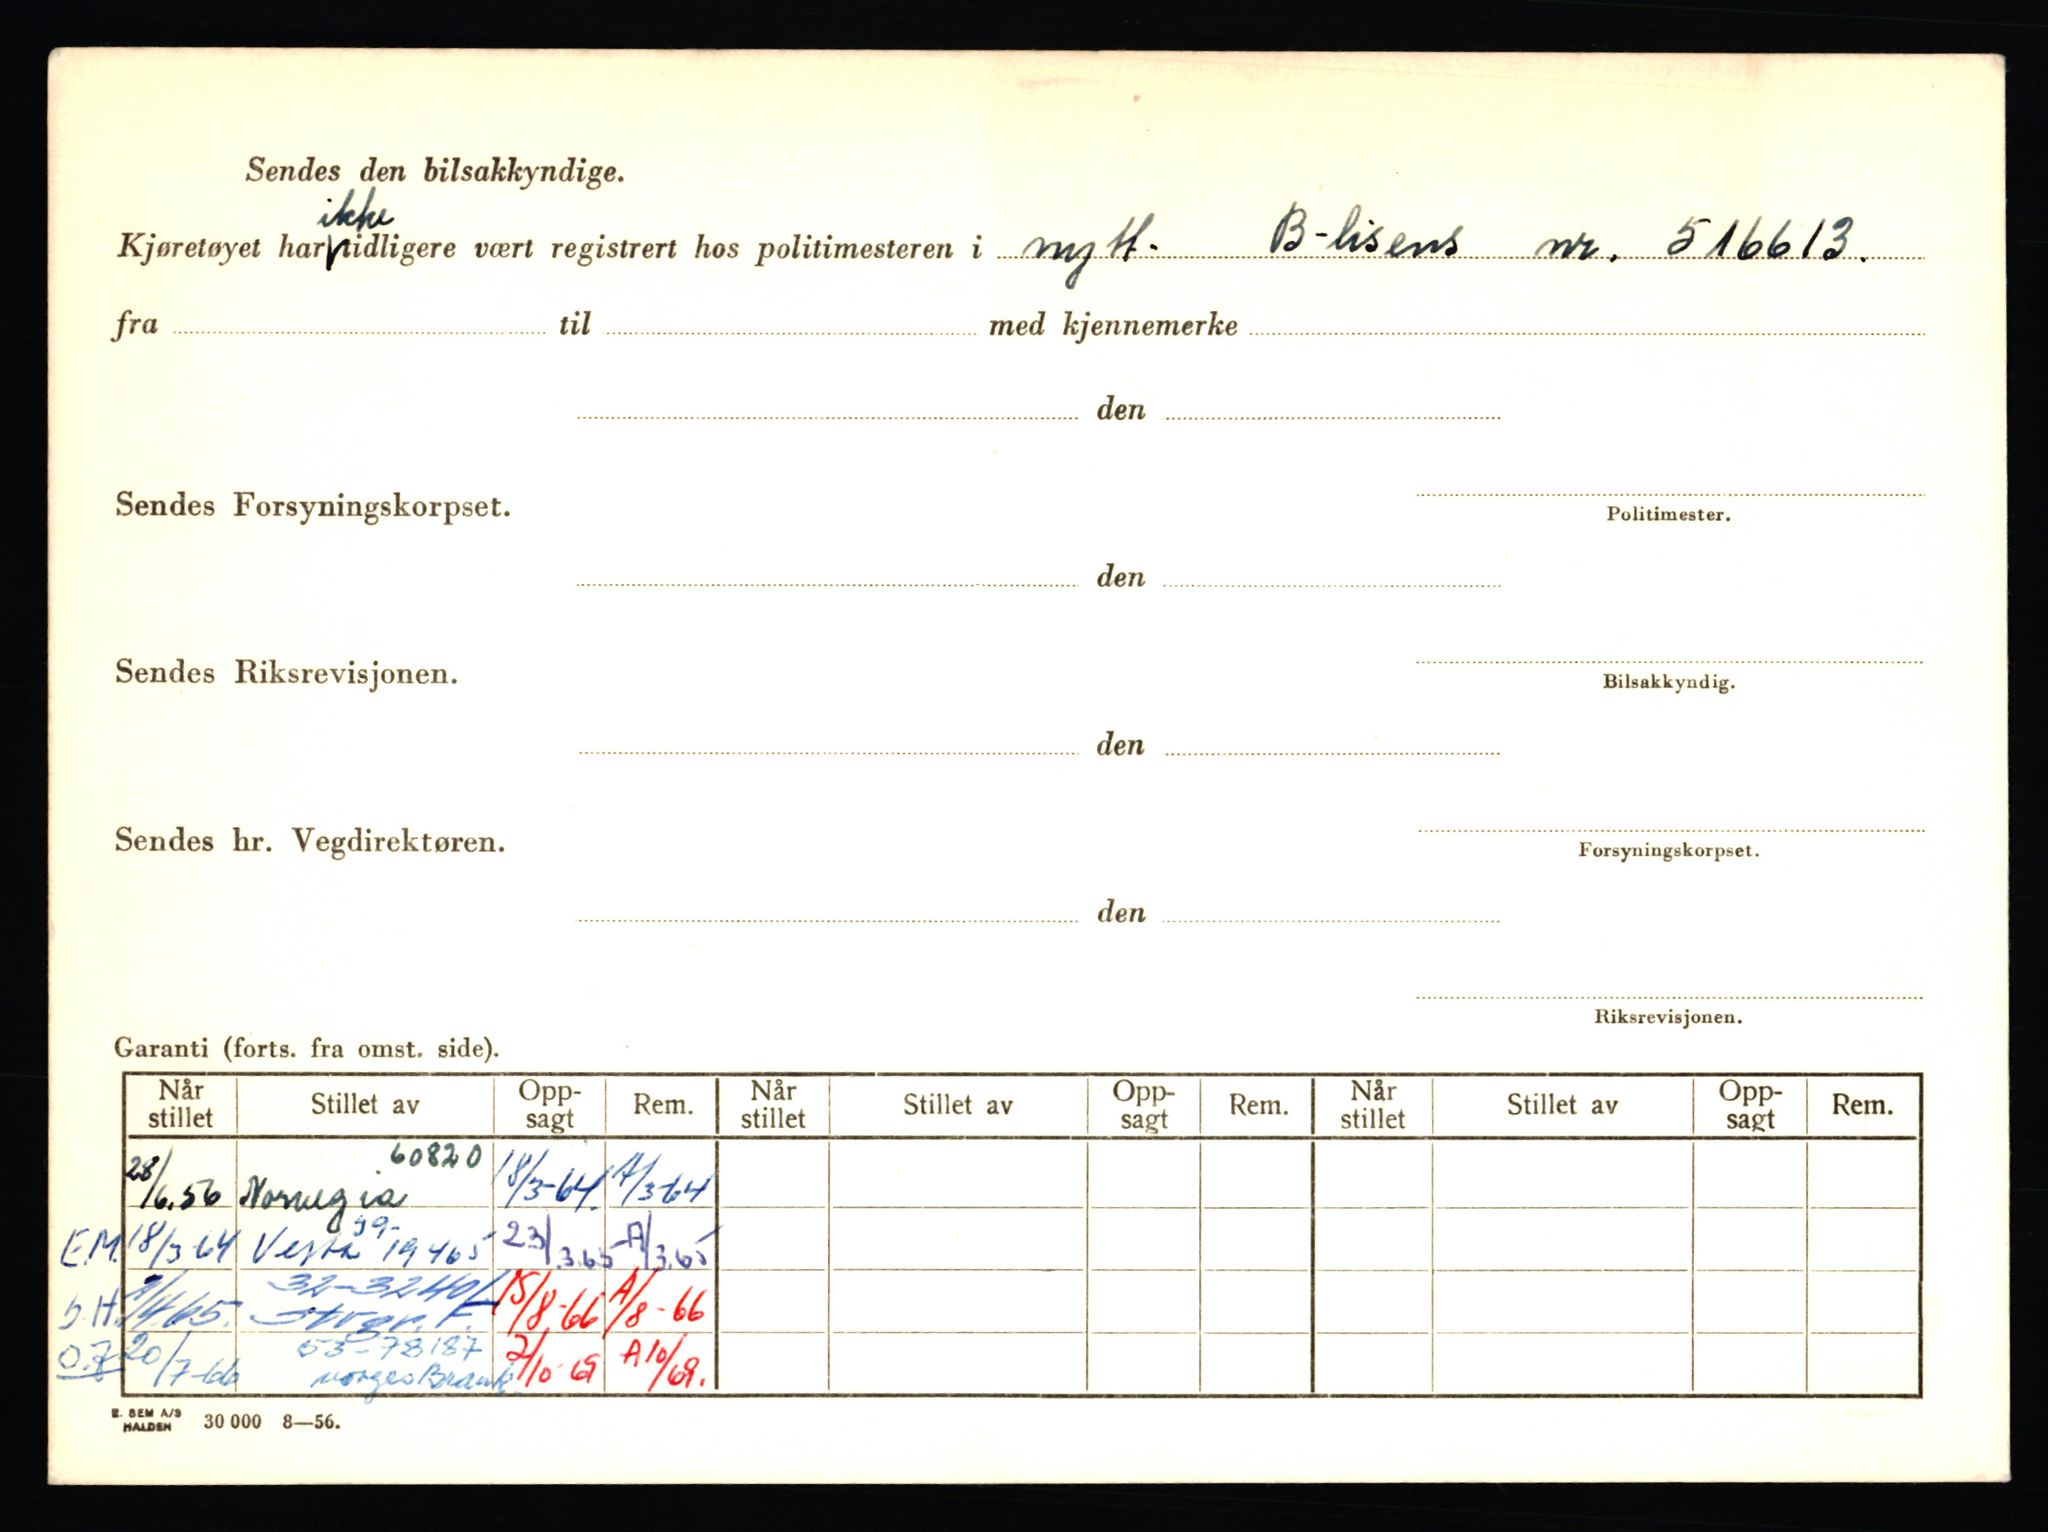 Sendes den bilsakkyndige.
ikke
Kjøretøyet har tidligere vært registrert hos politimesteren i nytt. B-lisens nr. 516613.
fra til med kjennemerke
den
Sendes Forsyningskorpset.
Politimester.
den
Sendes Riksrevisjonen.
Bilsakkyndig.
den
Sendes hr. Vegdirektøren.
Forsyningskorpset.
den
Riksrevisjonen.
Garanti (forts. fra omst. side).
Når stillet Stillet av Opp-sagt Rem. Når stillet Stillet av Opp-sagt Rem. Når stillet Stillet av Opp-sagt Rem.
60820
28/6.56 Norwegia 18/3-64. A/3-64
59-
E.M. 18/3-64 Vesta 19465 23/3.65 A/3.65
15/8-66 A/8-66
53-78187
20/7-66 Norges Brank. 2/10-69 A10/69.
E. SEM A/S
HALDEN 30 000 8—56.